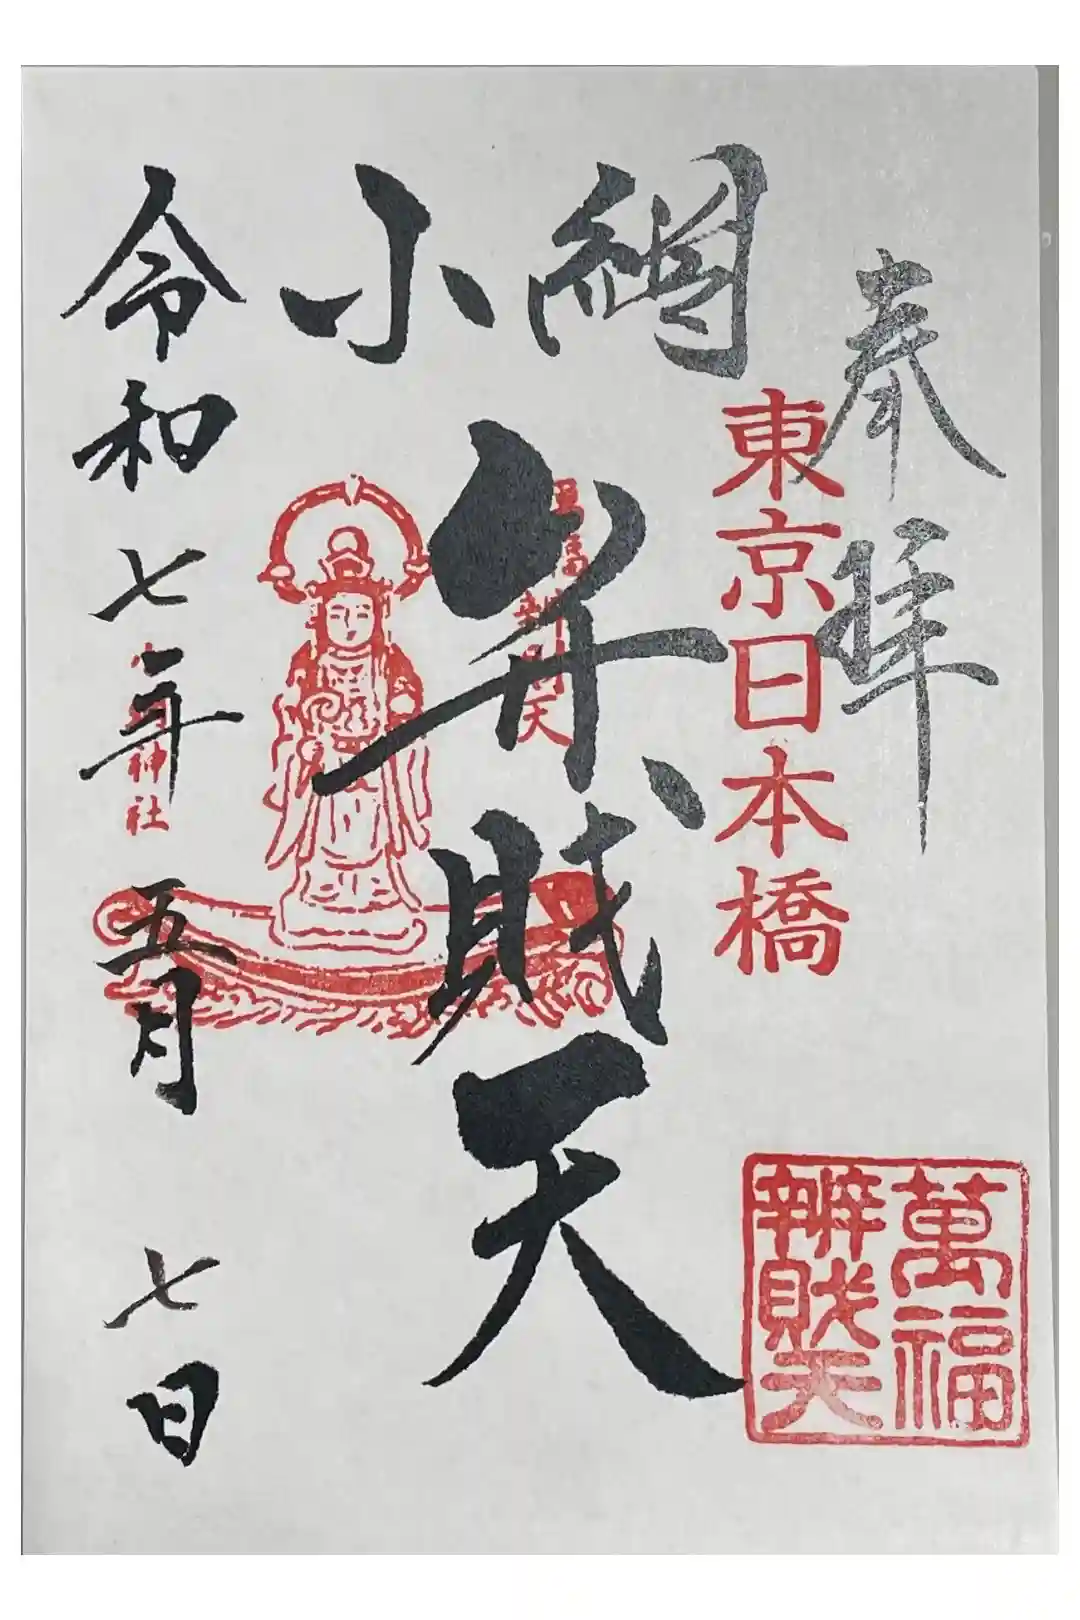 奉拝
東京日本橋
萬福
辨財天
網小
弁財天
萬福辨財天
令和七年五月七日
小網神社